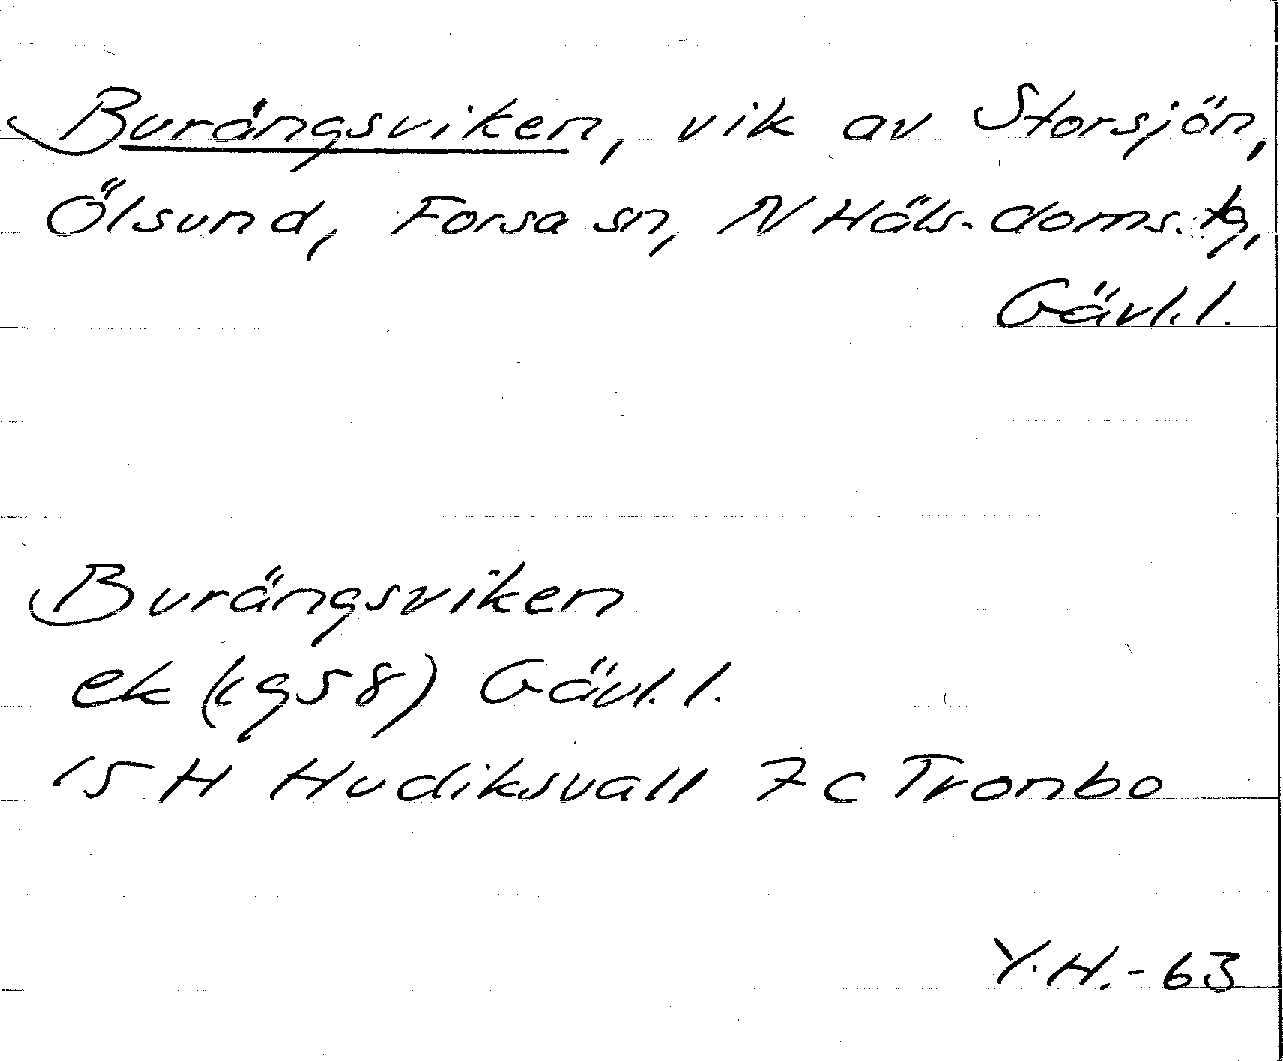 Burängsviken, vik av Storsjön,
Ölsund, Forsa sn, N Häls. doms. tg,
Gävl.l.
Burängsviken
ek (1958) Gävl.l.
15 H Hudiksvall 7 c Tronbo
Y.H.-63